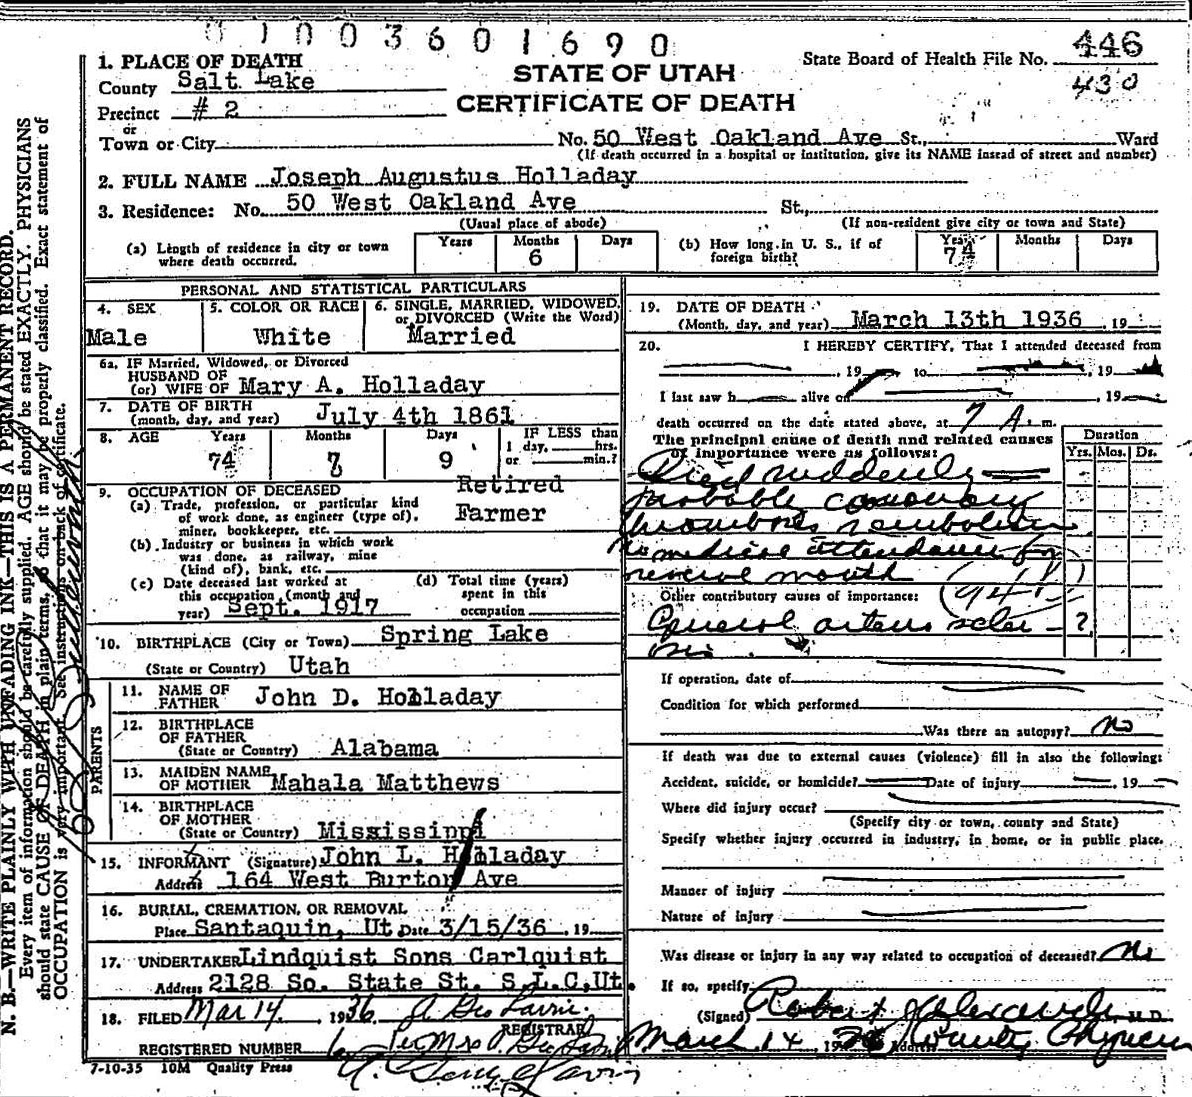 0 1 0 0 3 6 0 1 6 9 0
State Board of Health File No. 446
430
STATE OF UTAH
CERTIFICATE OF DEATH
1. PLACE OF DEATH
County Salt Lake
Precinct # 2
or
Town or City No. 50 West Oakland Ave St., Ward
(If death occurred in a hospital or institution, give its NAME insead of street and number)
2. FULL NAME Joseph Augustus Holladay
3. Residence: No. 50 West Oakland Ave St.,
(Usual place of abode) (If non-resident give city or town and State)
(a) Length of residence in city or town where death occurred. Years Months 6 Days
(b) How long in U. S., if of foreign birth? Years 74 Months Days
PERSONAL AND STATISTICAL PARTICULARS
4. SEX Male
5. COLOR OR RACE White
6. SINGLE, MARRIED, WIDOWED, or DIVORCED (Write the Word) Married
6a. IF Married, Widowed, or Divorced
HUSBAND OF
(or) WIFE OF Mary A. Holladay
7. DATE OF BIRTH
(month, day, and year) July 4th 1861
8. AGE Years 74 Months Days 9
IF LESS than
1 day, hrs.
or min.?
9. OCCUPATION OF DECEASED Retired
(a) Trade, profession, or particular kind
of work done, as engineer (type of), Farmer
miner, bookkeeper, etc.
(b) Industry or business in which work
was done, as railway, mine
(kind of), bank, etc.
(c) Date deceased last worked at
this occupation (month and
year) Sept. 1917
(d) Total time (years)
spent in this
occupation
10. BIRTHPLACE (City or Town) Spring Lake
(State or Country) Utah
PARENTS
11. NAME OF
FATHER John D. Holladay
12. BIRTHPLACE
OF FATHER
(State or Country) Alabama
13. MAIDEN NAME
OF MOTHER Mahala Matthews
14. BIRTHPLACE
OF MOTHER
(State or Country) Mississippi
15. INFORMANT (Signature) John L. Holladay
Address 164 West Burton Ave
16. BURIAL, CREMATION, OR REMOVAL
Place Santaquin, Ut. Date 3/15/36 , 19
17. UNDERTAKER Lindquist Sons Carlquist
Address 2128 So. State St. S.L.C,Ut.
18. FILED Mar 14, 1936
REGISTRAR
REGISTERED NUMBER
7-10-35 10M Quality Press
19. DATE OF DEATH
(Month, day, and year) March 13th 1936 , 19
20. I HEREBY CERTIFY, That I attended deceased from
, 19 to , 19
I last saw h alive on , 19
death occurred on the date stated above, at 7 A. m.
The principal cause of death and related causes
of importance were as follows:
Duration
Yrs. Mos. Ds.
Died suddenly
probable coronary
thrombosis embolism
No medical attendance for
several month
Other contributory causes of importance:
General arterio scler - ?
osis.
If operation, date of
Condition for which performed
Was there an autopsy? No
If death was due to external causes (violence) fill in also the following:
Accident, suicide, or homicide? Date of injury , 19
Where did injury occur?
(Specify city or town, county and State)
Specify whether injury occurred in industry, in home, or in public place.
Manner of injury
Nature of injury
Was disease or injury in any way related to occupation of deceased? No
If so, specify
(Signed) Robert Alexander, M.D.
March 14 , 1936 Address County Physician
N. B.—WRITE PLAINLY WITH UNFADING INK—THIS IS A PERMANENT RECORD.
Every item of information should be carefully supplied. AGE should be stated EXACTLY. PHYSICIANS
should state CAUSE OF DEATH in plain terms, so that it may be properly classified. Exact statement of
OCCUPATION is very important. See instructions on back of certificate.